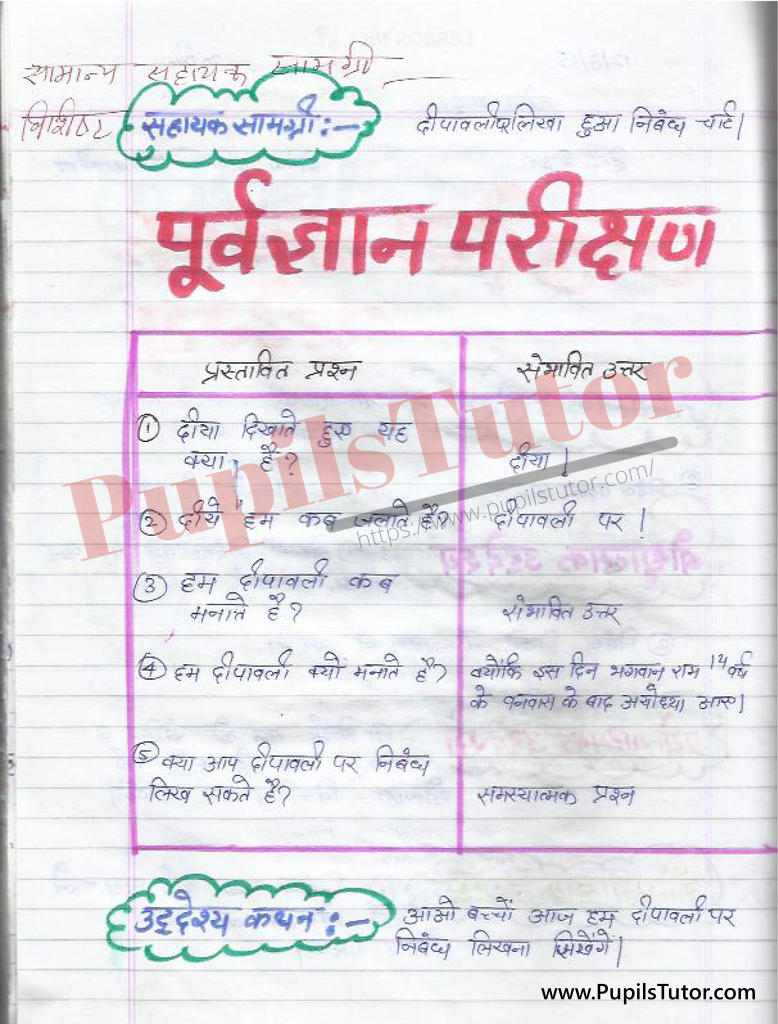 सामान्य सहायक सामग्री
विशिष्ट सहायक सामग्री :- दीपावली पर लिखा हुआ निबंध चार्ट।
पूर्वज्ञान परीक्षण
प्रस्तावित प्रश्न संभावित उत्तर
① दीया दिखाते हुए यह
क्या है? दीया।
② दीये हम कब जलाते है? दीपावली पर।
③ हम दीपावली कब
मनाते है? संभावित उत्तर
④ हम दीपावली क्यों मनाते है? क्योंकि इस दिन भगवान राम 14 वर्ष
के वनवास के बाद अयोध्या आए।
⑤ क्या आप दीपावली पर निबंध
लिख सकते है? समस्यात्मक प्रश्न
उद्देश्य कथन :- आओ बच्चों आज हम दीपावली पर
निबंध लिखना सिखेंगें।
PupilsTutor
https://www.pupilstutor.com/
www.PupilsTutor.com